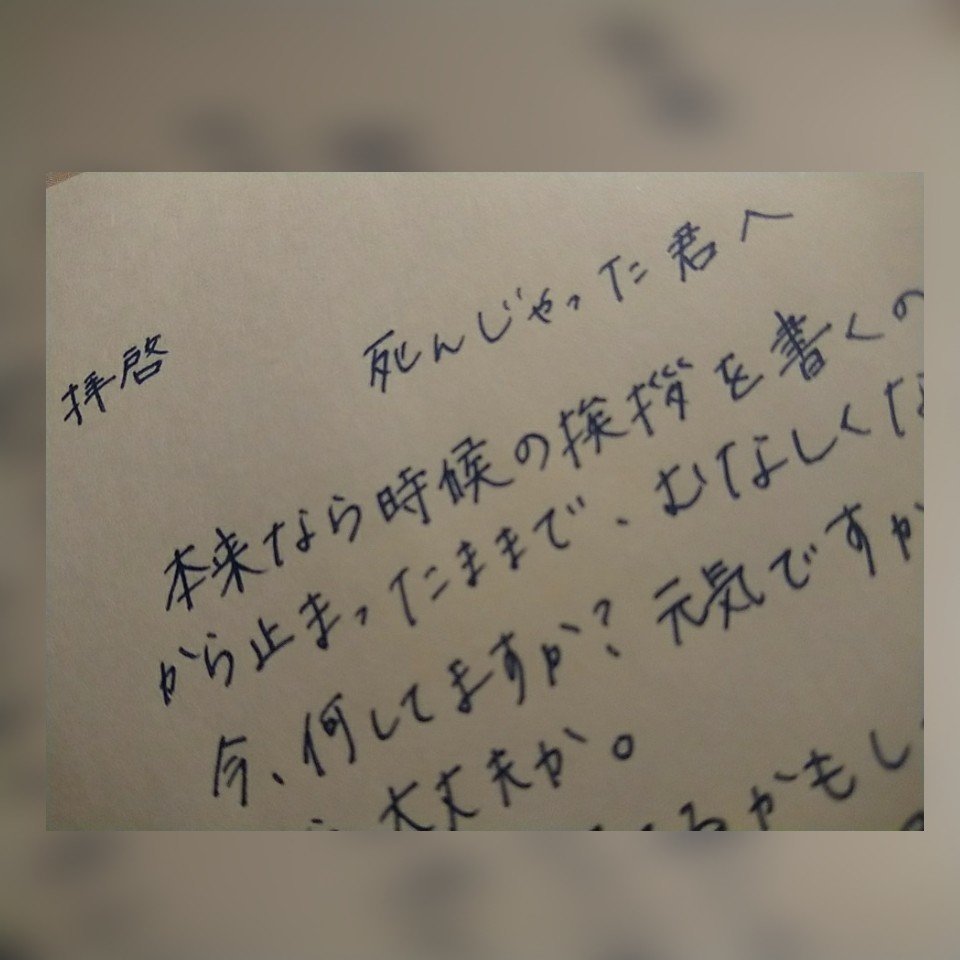 死んじゃった君へ
拝啓
本来なら時候の挨拶を書くの
から止まったままで、むなしくな
今、何してますか?元気ですか
大丈夫か。
るかもし